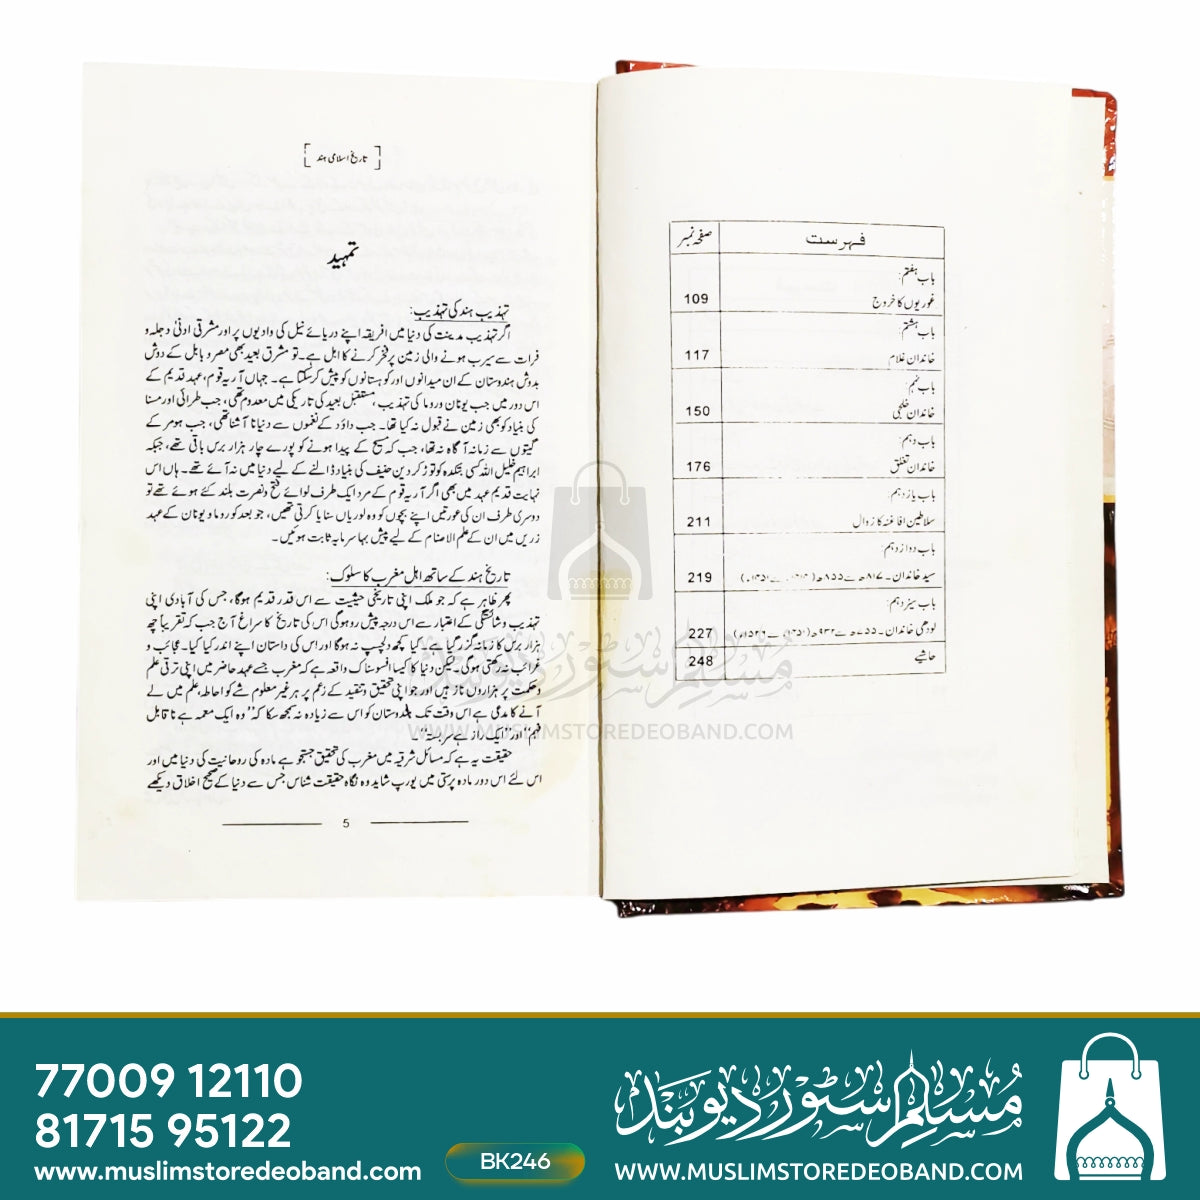 فہرست
صفحہ نمبر
باب ہفتم:
غوریوں کا خروج
109
باب ہشتم
خاندان غلام
117
باب نہم:
خاندان خلجی
150
باب دہم
خاندان تغلق
176
باب یازدہم:
سلاطین افاغنہ کا زوال
211
باب دوازدہم
سید خاندان۔ ۸۱۷ھ سے ۸۵۵ھ
219
باب سیزدہم:
لودھی خاندان۔ ۸۵۵ھ سے ۹۳۲ھ
227
حاشیے
248
[تاریخ اسلامی ہند]
تمہید
تہذیب ہند کی تہذیب:
اگر تہذیب مدینت کی دنیا میں افریقہ اپنے دریائے نیل کی وادیوں پر اور مشرقی ادنیٰ دجلہ و
فرات سے سیرب ہونے والی زمین پر فخر کرنے کا اہل ہے۔ تو مشرق بعید بھی مصر و بابل کے دوش
بدوش ہندوستان کے ان میدانوں اور کوہستانوں کو پیش کر سکتا ہے۔ جہاں آریہ قوم، عہد قدیم کے
اس دور میں جب یونان و روما کی تہذیب، مستقبل بعید کی تاریکی میں معدوم تھی، جب طرائی اور مسنا
کی بنیاد کو بھی زمین نے قبول نہ کیا تھا۔ جب داؤد کے نغموں سے دنیا نا آشنا تھی، جب ہومر کے
گیتوں سے زمانہ آگاہ نہ تھا، جب کہ مسیح کے پیدا ہونے کو پورے چار ہزار برس باقی تھے، جبکہ
ابراہیم خلیل اللہ کسی بتکدہ کو توڑ کر دین حنیف کی بنیاد ڈالنے کے لیے دنیا میں نہ آئے تھے۔ ہاں اس
نہایت قدیم عہد میں بھی اگر آریہ قوم کے مرد ایک طرف لوائے فتح و نصرت بلند کئے ہوئے تھے تو
دوسری طرف ان کی عورتیں اپنے بچوں کو وہ لوریاں سنایا کرتی تھیں، جو بعد کو روما و یونان کے عہد
زریں میں ان کے علم الاصنام کے لیے پیش بہا سرمایہ ثابت ہوئیں۔
تاریخ ہند کے ساتھ اہل مغرب کا سلوک:
پھر ظاہر ہے کہ جو ملک اپنی تاریخی حیثیت سے اس قدر قدیم ہوگا، جس کی آبادی اپنی
تہذیب و شائستگی کے اعتبار سے اس درجہ پیش رو ہوگی اس کی تاریخ کا سراغ آج جب کہ تقریباً چھ
ہزار برس کا زمانہ گزر گیا ہے۔ کیا کچھ دلچسپ نہ ہوگا اور اس کی داستان اپنے اندر کیا کیا۔ عجائب و
غرائب نہ رکھتی ہوگی۔ لیکن دنیا کا کیسا افسوسناک واقعہ ہے کہ مغرب جسے عہد حاضر میں اپنی ترقی علم
و حکمت پر ہزاروں ناز ہیں اور جو اپنی تحقیق و تنقید کے زعم پر ہر غیر معلوم شے کو احاطہ، علم میں لے
آنے کا مدعی ہے اس وقت تک ہندوستان کو اس سے زیادہ نہ سمجھ سکا کہ "وہ ایک معمہ ہے نا قابل
فہم" اور "ایک راز ہے سربستہ"۔
حقیقت یہ ہے کہ مسائل شرقیہ میں مغرب کی تحقیق جستجو ہے مادہ کی روحانیت کی دنیا میں اور
اس لئے اس دور مادہ پرستی میں یورپ شاید وہ نگاہ حقیقت شناس جس سے دنیا کے صحیح اخلاق دیکھے
5
مسلم سٹور دیوبند
WWW.MUSLIMSTOREDEOBAND.COM
77009 12110
81715 95122
www.muslimstoredeoband.com
BK246
مسلم سٹور دیوبند
WWW.MUSLIMSTOREDEOBAND.COM